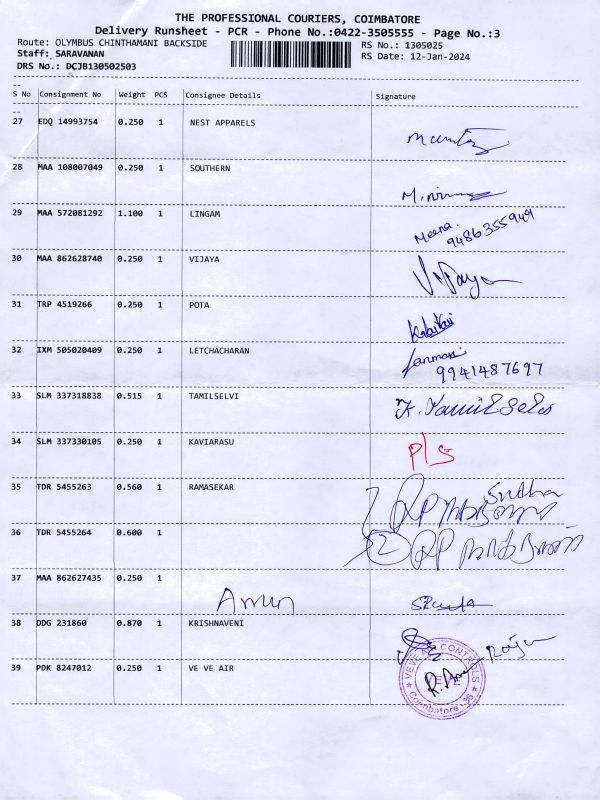 THE PROFESSIONAL COURIERS, COIMBATORE
Delivery Runsheet - PCR - Phone No.:0422-3505555 - Page No.:3
Route: OLYMBUS CHINTHAMANI BACKSIDE RS No.: 1305025
Staff: SARAVANAN RS Date: 12-Jan-2024
DRS No.: DCJB130502503
S No Consignment No Weight PCS Consignee Details Signature
27 EDQ 14993754 0.250 1 NEST APPARELS
28 MAA 108007049 0.250 1 SOUTHERN
29 MAA 572081292 1.100 1 LINGAM Meena.
9486355949
30 MAA 862628740 0.250 1 VIJAYA
31 TRP 4519266 0.250 1 POTA
32 IXM 505020409 0.250 1 LETCHACHARAN
9941487697
33 SLM 337318838 0.515 1 TAMILSELVI
34 SLM 337330105 0.250 1 KAVIARASU P/S
35 TDR 5455263 0.560 1 RAMASEKAR
36 TDR 5455264 0.600 1
37 MAA 862627435 0.250 1 Arun
38 DDG 231860 0.870 1 KRISHNAVENI
39 PDK 8247012 0.250 1 VE VE AIR Raju
VEVE AIR CONTROLS
Coimbatore - 36